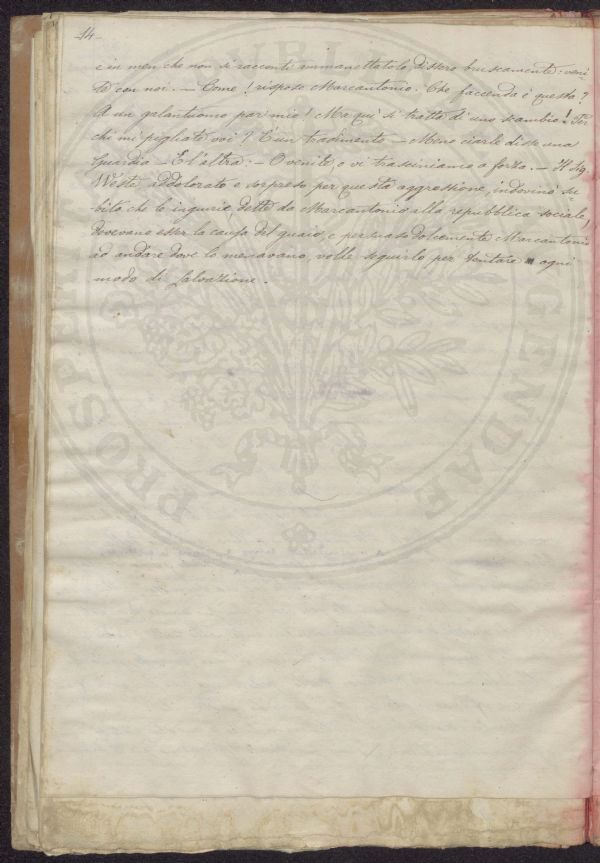 14
e in men che non si racconti ammanettatolo dissero bruscamente: veni-
te con noi. — Come! rispose Marcantonio. Che faccenda è questa?
A un galantuomo par mio! Ma qui si tratta di uno scambio! Per
chi mi pigliate voi? È un tradimento — Meno ciarle disse una
Guardia — E l'altra: — O venite, o vi trasciniamo a forza. — Il Sig.
Weste, addolorato e sorpreso per questa aggressione, indovinò su-
bito che le ingiurie dette da Marcantonio alla repubblica sociale,
dovevano esser la causa del guaio, e persuaso dolcemente Marcantonio
ad andare dove lo menavano, volle seguirlo per tentare ogni
modo di salvazione.
PROSPE
GENDAE